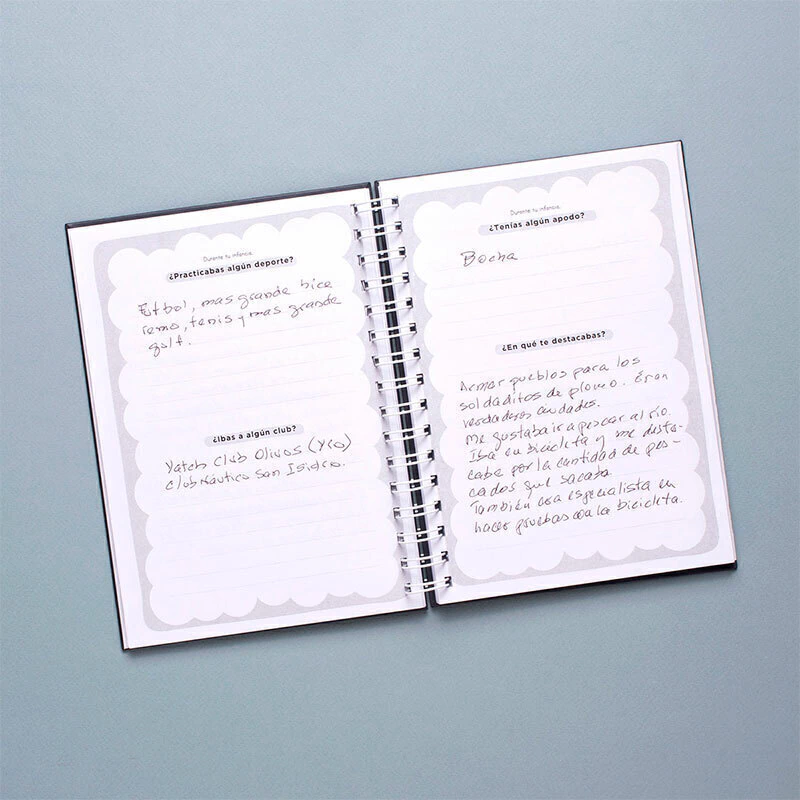 Durante tu infancia,
¿Practicabas algún deporte?
Fútbol, mas grande bice
remo, tenis y mas grande
golf.
¿Ibas a algún club?
Yatch Club Olivos (YCO)
club Náutico San Isidro.
Durante tu infancia,
¿Tenías algún apodo?
Bocha
¿En qué te destacabas?
Armar pueblos para los
soldaditos de plomo. Eran
verdaderas ciudades.
Me gustaba ir a pescar al río.
Iba en bicicleta y me desta-
caba por la cantidad de pes-
cados que sacaba.
También era especialista en
hacer pruebas con la bicicleta.